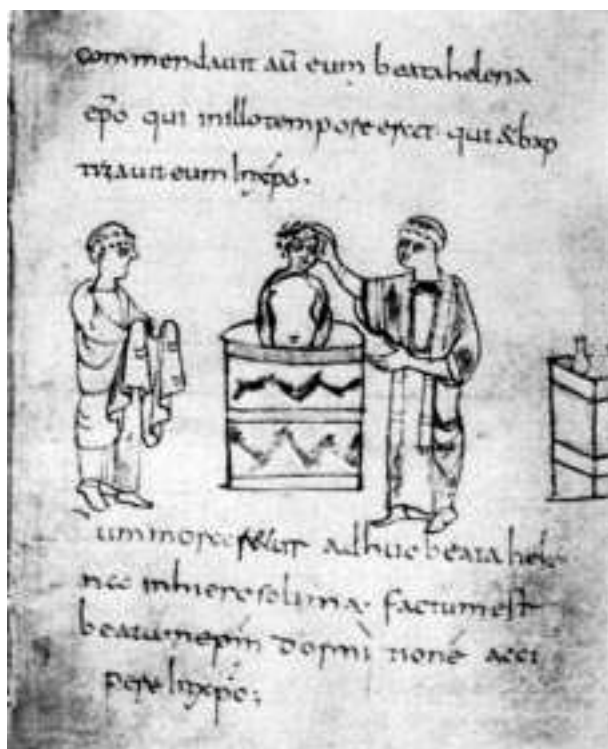 commendauit aū eum beata helena
ep̄o qui in illo tempore erat. qui & bap
tizauit eum In xp̄o.
um morare&ur adhuc beata hele
na in hierosolima. factum est
beatum ep̄m dormi tionē acci
pere In xp̄o;